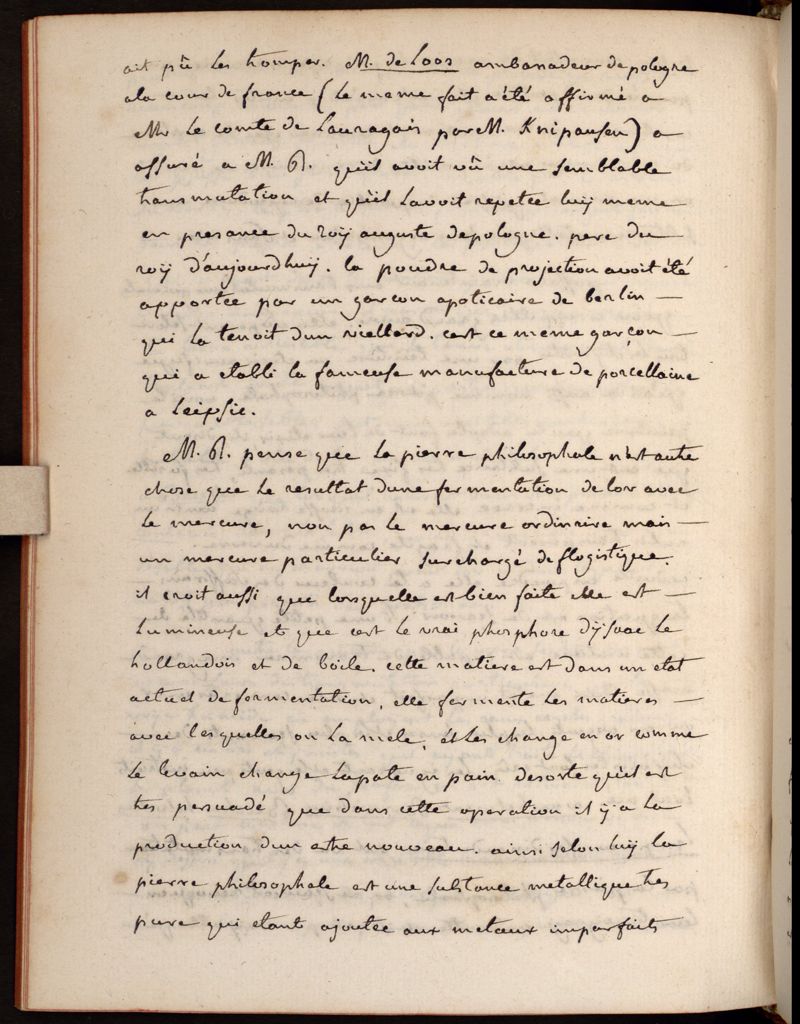 ait pû les tromper. M. de Loos ambassadeur de pologne
ala cour de france (le meme fait a été affirmé a
Mr le comte de Lauragais par M. Knipausen) a
assuré a M. R. qu'il avoit vû une semblable
transmutation et qu'il lavoit repetée luÿ meme
en presance du roÿ auguste de pologne. pere du
roÿ d'aujourdhuÿ. la poudre de projection avoit été
apportée par un garcon apoticaire de berlin —
qui la tenoit dun viellard. cest ce meme garçon —
qui a etabli la fameuse manufacture de porcellaine
a Leipsic.
M. R. pense que la pierre philosophale n'est autre
chose que le resultat dune fermentation de lor avec
le mercure, non pas le mercure ordinaire mais —
un mercure particulier surchargé de flogistique.
il croit aussi que lorsquelle est bien faite elle est —
lumineuse et que cest le vrai phosphore d'ÿsaac le
hollandois et de boile. cette matiere est dans un etat
actuel de fermentation, elle fermente les matieres —
avec lesquelles on la mele, et les change en or comme
le levain change la pate en pain. desorte qu'il est
tres persuadé que dans cette operation il ÿ a la
production dun estre nouveau. ainsi selon luÿ la
pierre philosophale est une substance metallique tres
pure qui etant ajoutée aux metaux imparfaits